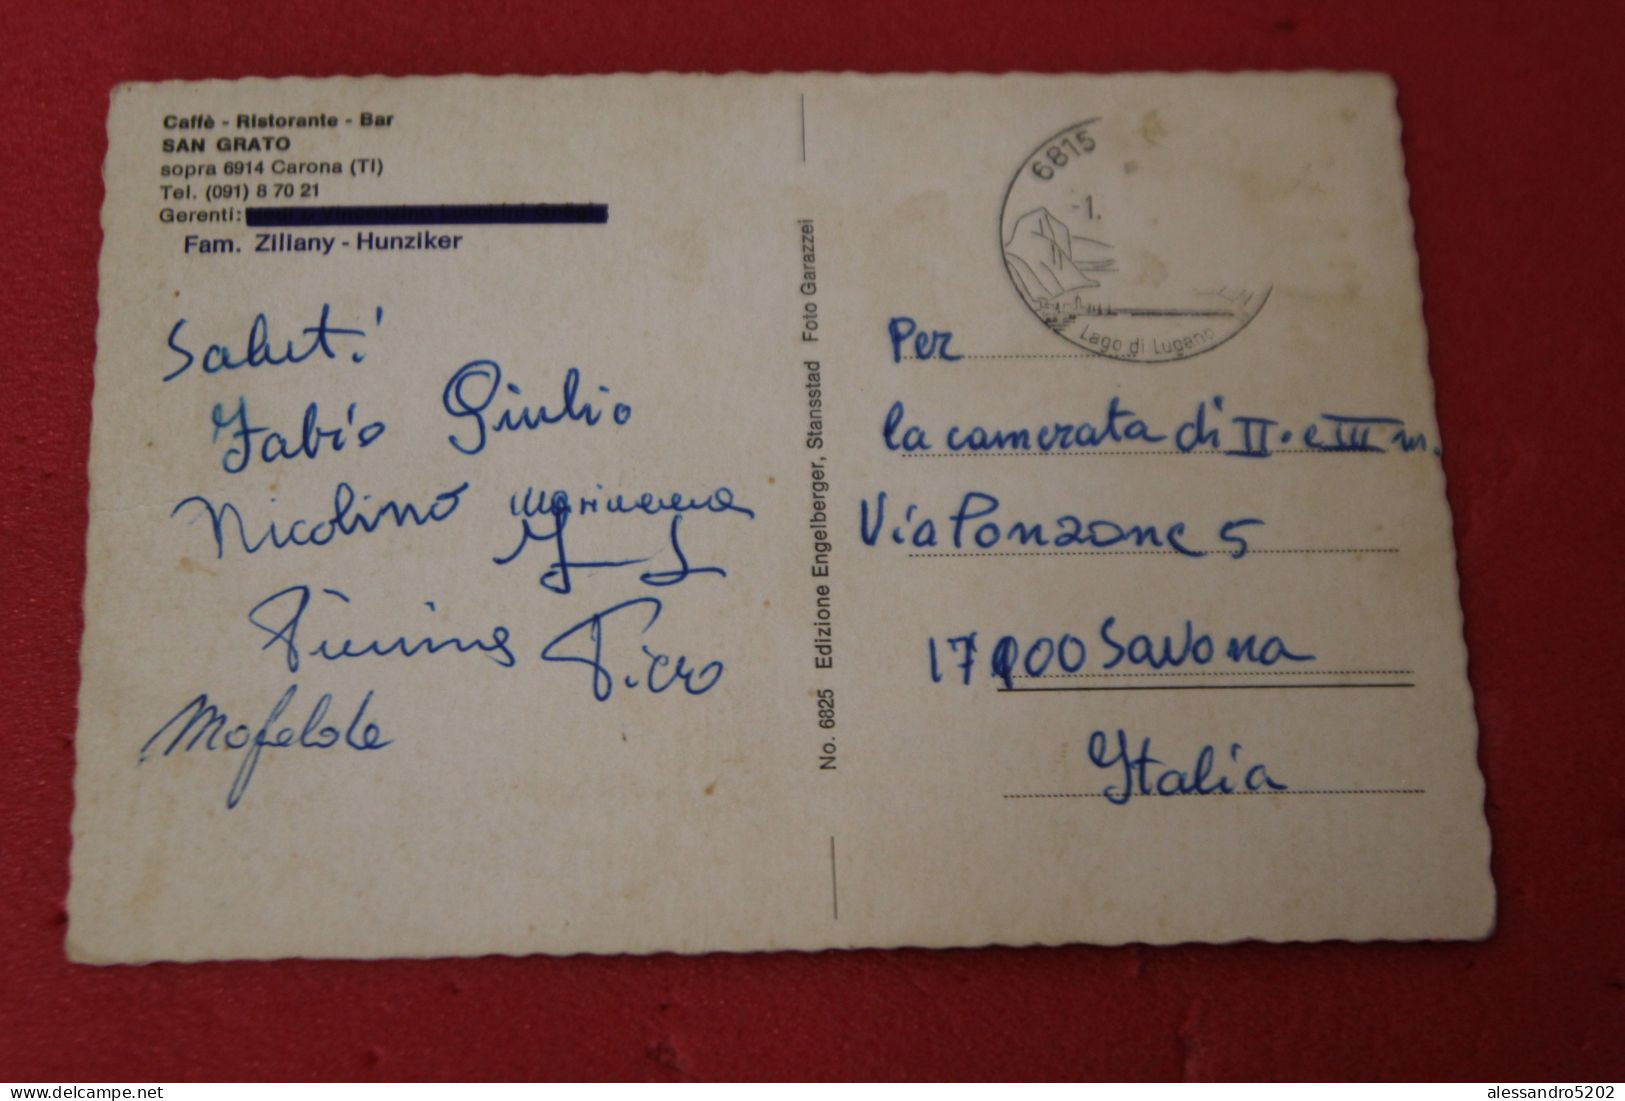 Caffè - Ristorante - Bar
SAN GRATO
sopra 6914 Carona (TI)
Tel. (091) 8 70 21
Gerenti:
Fam. Ziliany - Hunziker
Saluti
Fabio Giulio
Nicolino Marinena
Piero
No. 6825 Edizione Engelberger, Stansstad Foto Garazzei
6815
-1.
Lago di Lugano
Per
la camerata di II. e III m.
Via Ponzone 5
17100 Savona
Italia
alessandro5202